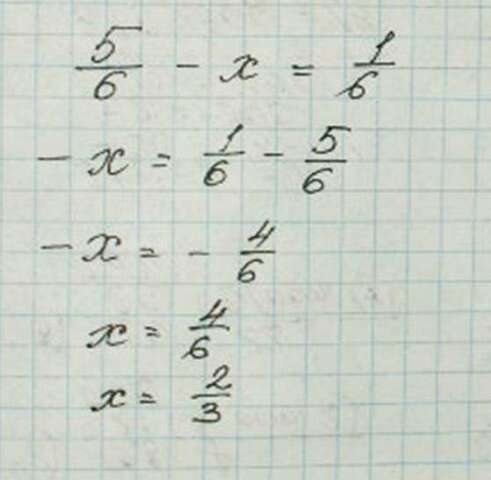 5/6 - x = 1/6
- x = 1/6 - 5/6
- x = - 4/6
x = 4/6
x = 2/3